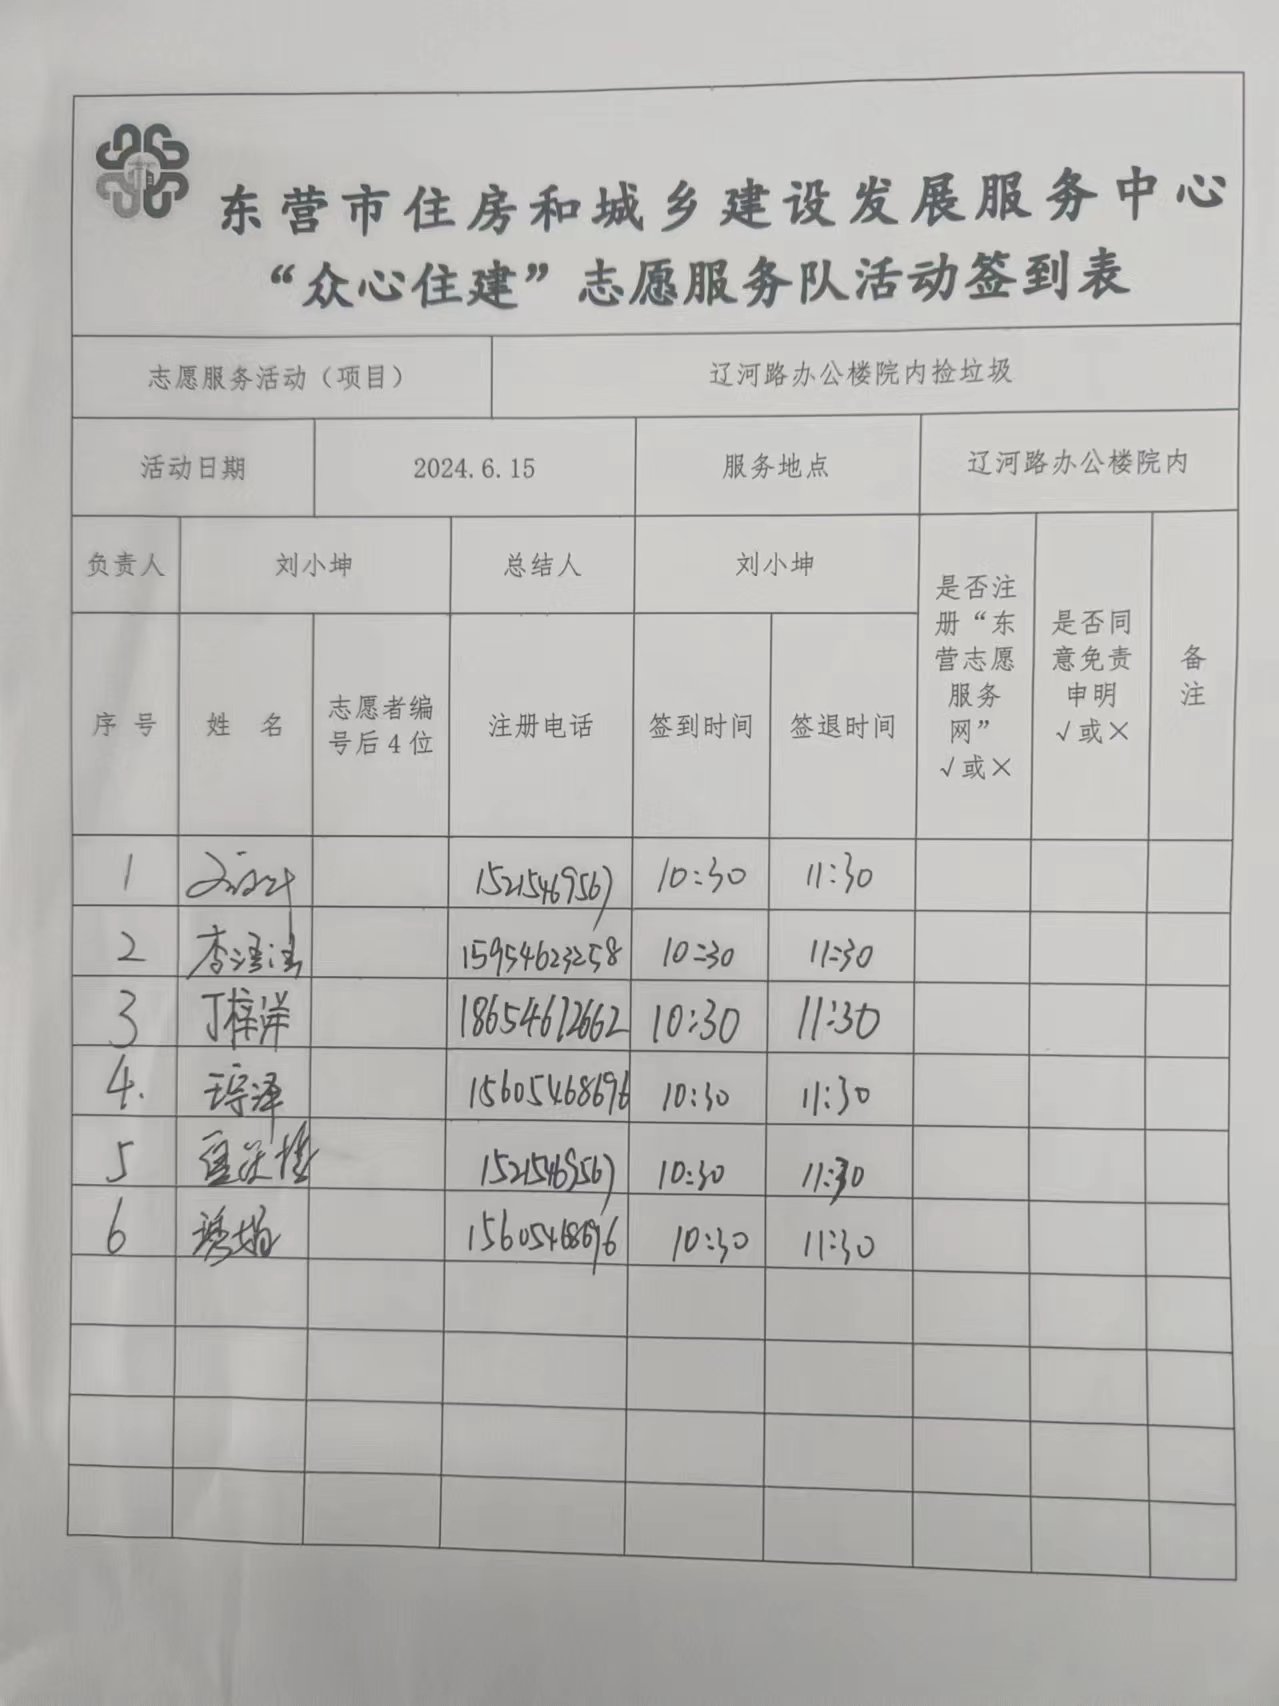 东营市住房和城乡建设发展服务中心
“众心住建”志愿服务队活动签到表
志愿服务活动（项目） 辽河路办公楼院内捡垃圾
活动日期 2024.6.15 服务地点 辽河路办公楼院内
负责人 刘小坤 总结人 刘小坤
序号 姓名 志愿者编号后4位 注册电话 签到时间 签退时间 是否注册“东营志愿服务网”√或× 是否同意免责申明√或× 备注
1 15215469567 10:30 11:30
2 15954623258 10:30 11:30
3 丁梓洋 18654612662 10:30 11:30
4. 15605468696 10:30 11:30
5 15215469567 10:30 11:30
6 15605468696 10:30 11:30